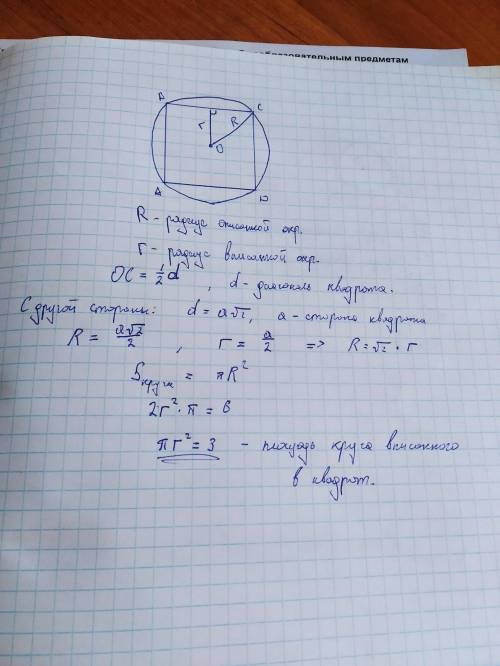 образовательным предметам
B C
r R
O
A D
R - радиус описанной окр.
r - радиус вписанной окр.
OC = 1/2 d, d - диагональ квадрата.
С другой стороны: d = a√2, a - сторона квадрата
R = a√2/2, r = a/2 => R = √2 · r
Sкруга = πR²
2r² · π = 6
πr² = 3 - площадь круга вписанного
в квадрат.